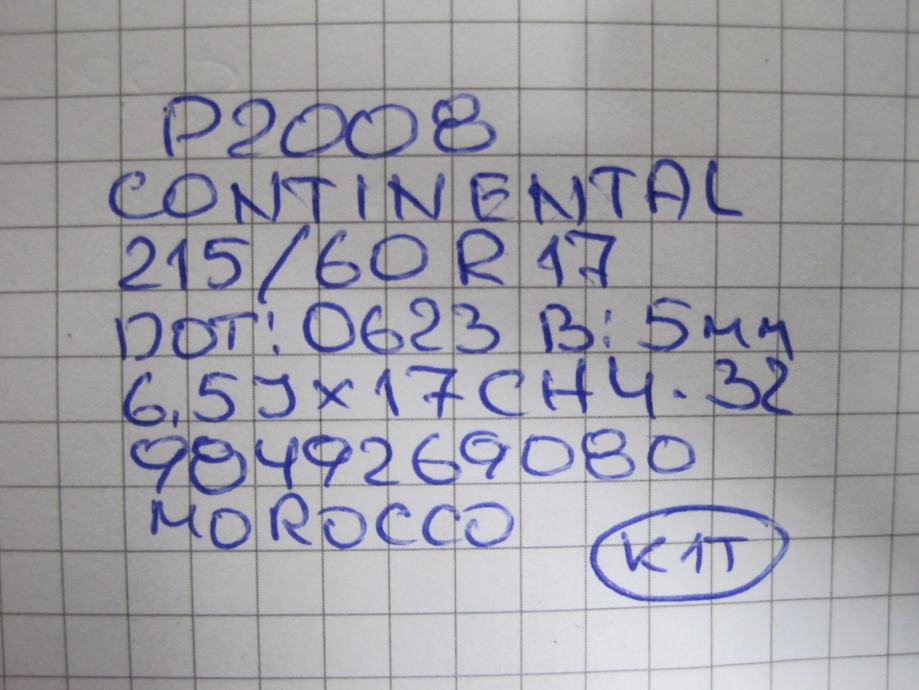 P2008
CONTINENTAL
215/60 R 17
DOT: 0623 B: 5mm
6.5J x 17 CH4.32
9849269080
MOROCCO
K1T